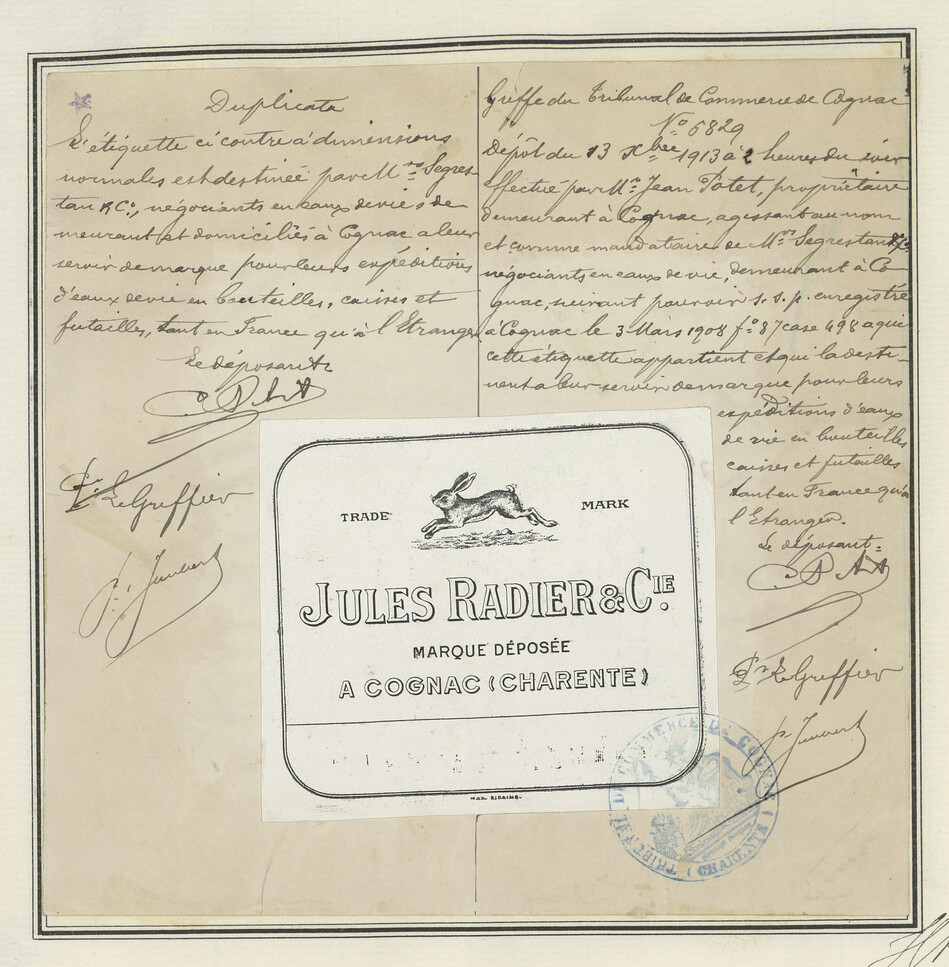 Duplicata
L'étiquette ci contre à dimensions
normales est destinée par Mrs Segres-
tan & Co., négociants en eaux de vie, de
meurant et domiciliés à Cognac a leur
servir de marque pour leurs expéditions
d'eaux de vie en bouteilles, caisses et
futailles, tant en France qu'à l'Etranger
Le déposant:
Pr Le Greffier
Greffe du Tribunal de Commerce de Cognac
No 6829
Dépôt du 13 Xbre 1913 à 2 heures du soir
effectué par Mr Jean Potet, propriétaire
demeurant à Cognac, agissant au nom
et comme mandataire de Mrs Segrestan & Co
négociants en eaux de vie, demeurant à Co
gnac, suivant pouvoir s. s. p. enregistré
à Cognac le 3 Mars 1908 fo 87 case 498 a qui
cette étiquette appartient et qui la desti-
nent a leur servir de marque pour leurs
expéditions d'eaux
de vie en bouteilles
caisses et futailles
tant en France qu'à
l'Etranger.
Le déposant:
Pr Le Greffier
TRADE MARK
JULES RADIER & CIE.
MARQUE DÉPOSÉE
A COGNAC (CHARENTE)
TRIBUNAL DE COMMERCE DE COGNAC (CHARENTE)